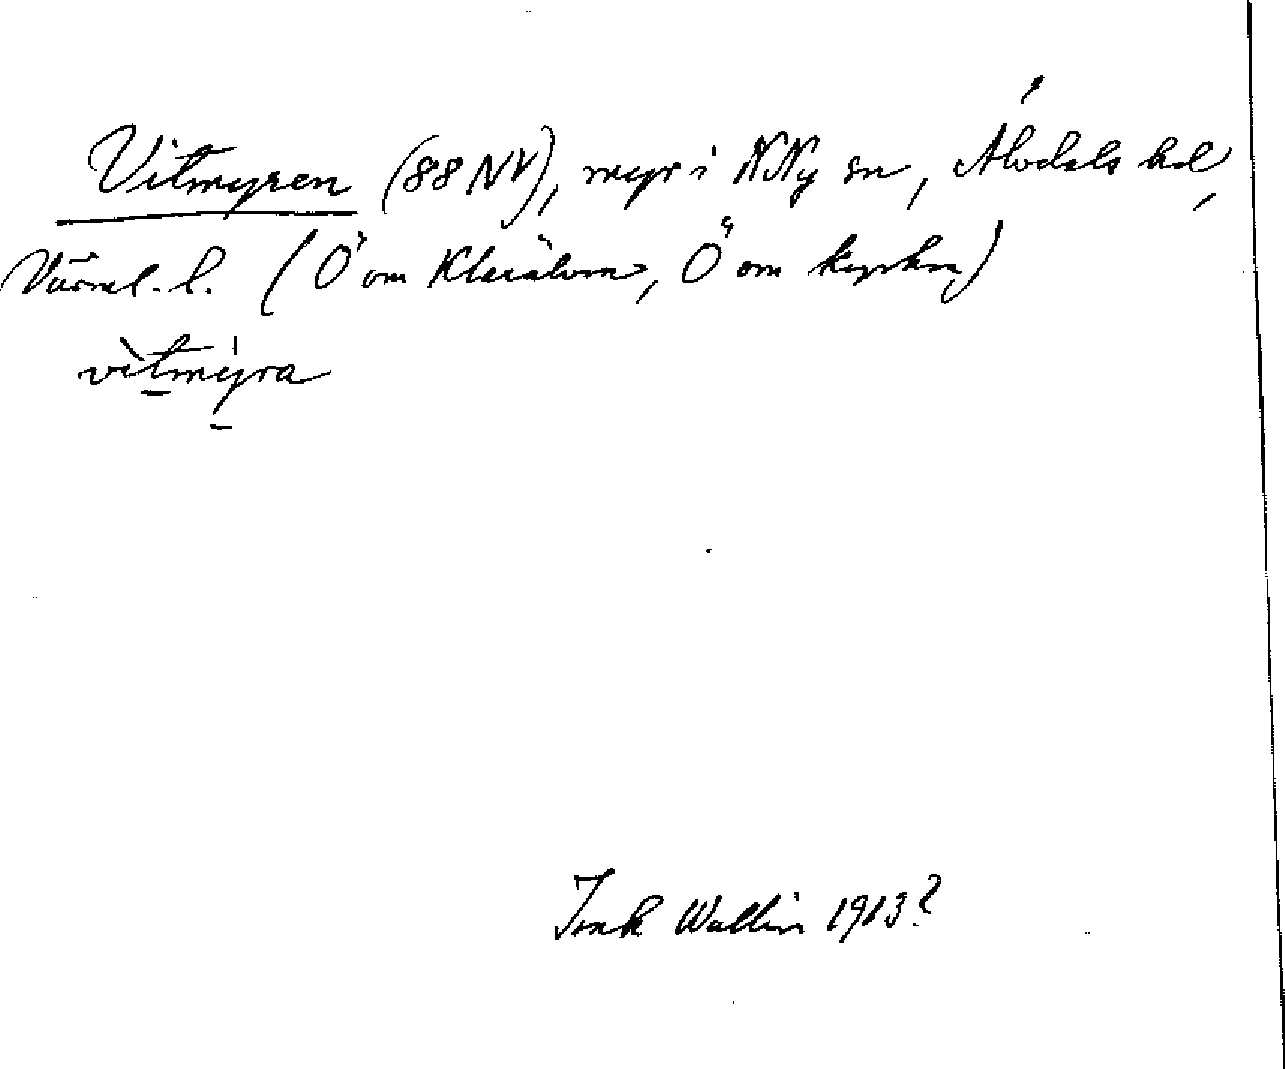 Vitmyren (88 NV), myr i NNy sn, Älvdals hd,
Värml. l. (Ö om Klarälven, Ö om kyrkan)
vìtmýra
Wallin 1913?